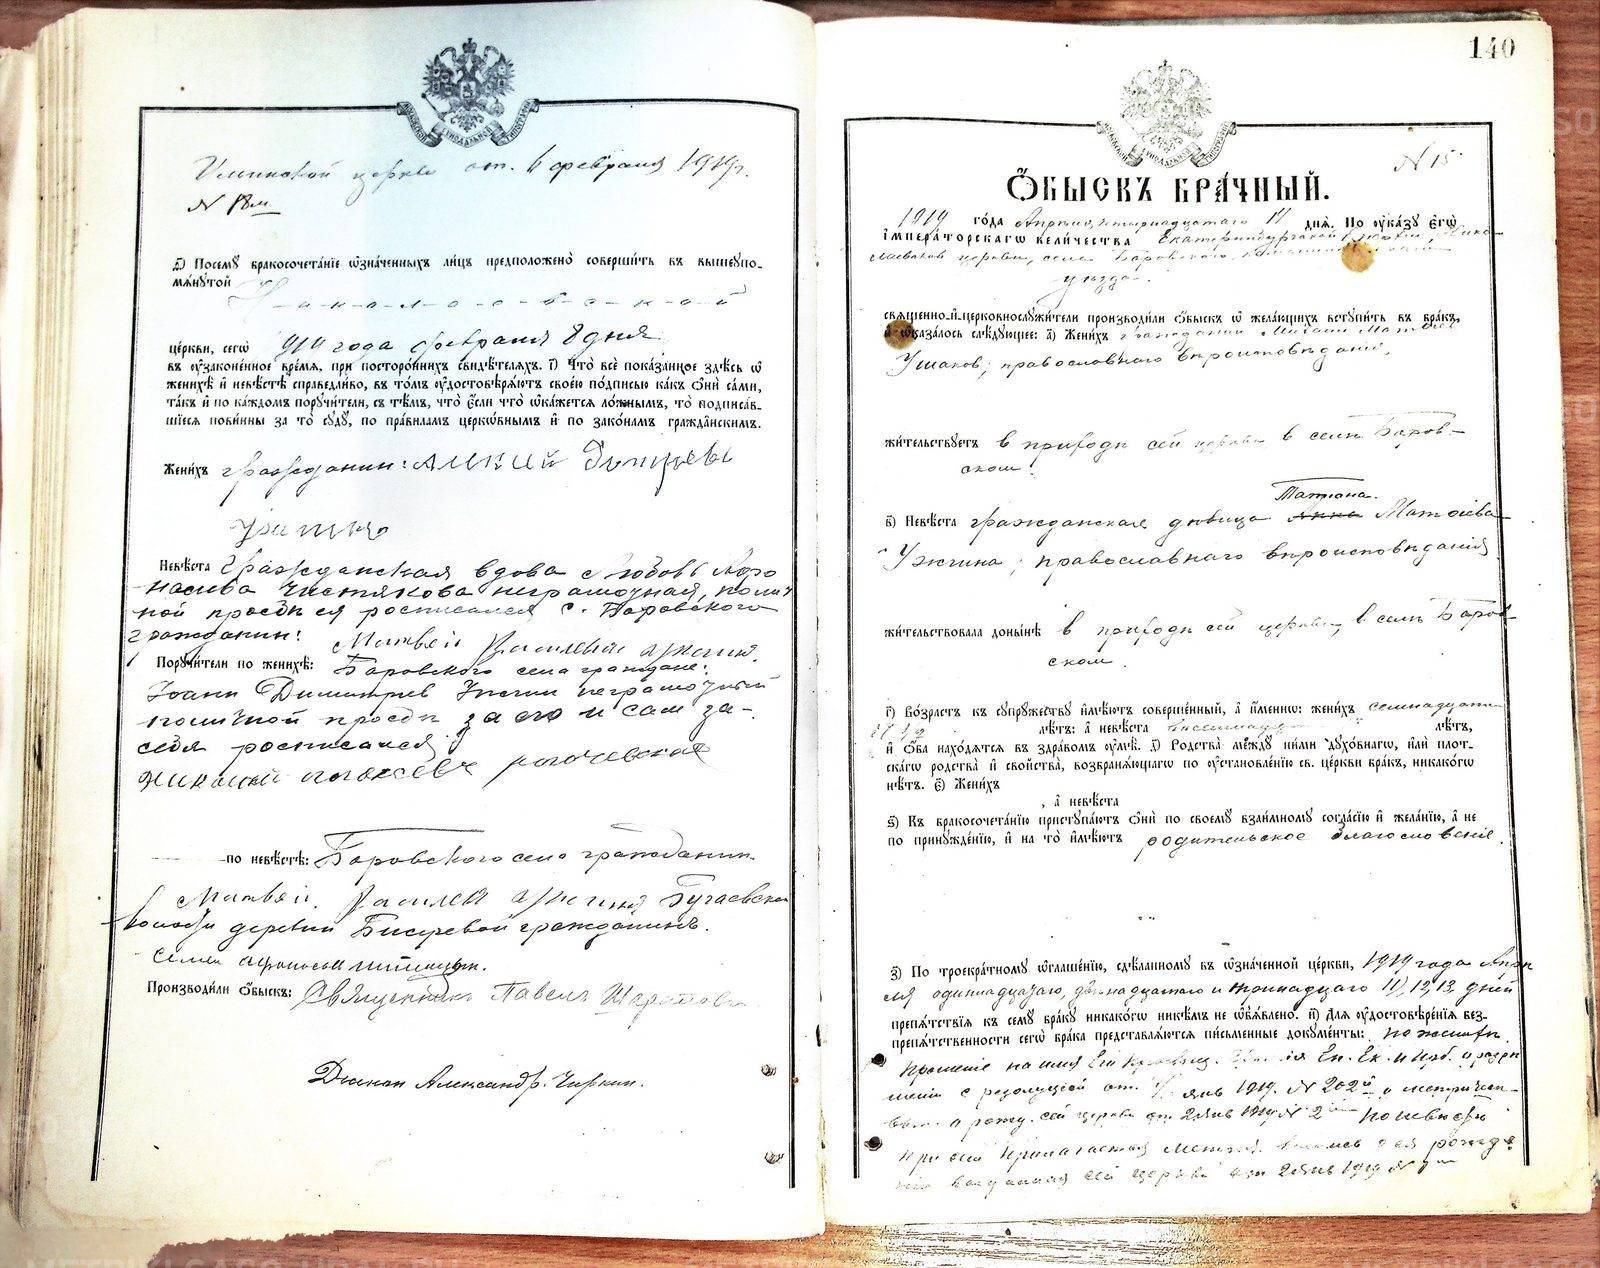 Ильинской церкви от 6 февраля 1919г.
N 18м
Д) Посему бракосочетаніе ѡзначенныхъ лицъ предположено совершить въ вышеупо-
мянутой Николаевской
церкви, сегѡ 1919 года февраля 8 дня
въ оузаконенное время, при постороннихъ свидѣтеляхъ. Г) Что всё показанное здѣсь ѡ
женихѣ и невѣстѣ справедливо, въ томъ оудостовѣряютъ своею подписью какъ ѻни сами,
такъ и по каждомъ поручители, съ тѣмъ, что если что ѡкажется ложнымъ, то подписав-
шіеся повинны за то суду, по правиламъ церкѡвнымъ и по законамъ гражданскимъ.
Женихъ гражданин: Алексѣй Дмитріевъ
Ужгинъ
Невѣста Гражданская вдова Любовь Афо
насьева Чистякова неграмотная, по лич
ной просьбѣ ея росписался с. Боровского
гражданин:
Матвей Васильев Ужгин.
Поручители по женихѣ: Боровского села граждане:
Іоанн Димитріев Ужгин неграмотный
по личной просьбѣ за его и сам за-
себя росписался
Николай Алексеевъ Рогачевских
по невѣстѣ: Боровского села гражданин
Матвей Васильев Ужгин Бугаевской
волости деревни Бисеревой гражданинъ.
Семен
Производили ѻбыскъ: Священникъ Павелъ Шарапов
Диакон Александр. Чиркин.
140
N 15
Ѻбыскъ брачный.
1919 года Апрѣля, четырнадцатаго 14 дня. По оуказу Егѡ
Императорскагѡ величества Екатеринбургской Епархіи, Нико-
лаевской церкви, села Боровского, Камышловского
уѣзда.
священно-и-церковнослужители производили ѻбыскъ ѡ желающихъ вступить въ бракъ,
и ѡказалось слѣдующее: а) Женихъ гражданин Михаил Матвіев
Ушаков; православного вѣроисповѣданія,
жительствуетъ в приходѣ сей церкви в селѣ Боров-
ском.
Матрона.
в) Невѣста гражданская дѣвица Анна Матвіева
Ужгина; православнаго вѣроисповѣданія
жительствовала донынѣ в приходѣ сей церкви, в селѣ Боров-
ском.
г) Возрастъ къ супружеству имѣютъ совершенный, а именно: женихъ семнадцати
лѣтъ: а невѣста лѣтъ,
и ѻба находятся въ здравомъ оумѣ. д) Родства между ними духовнагѡ, или плот-
скагѡ родства и свойства, возбраняющагѡ по оустановленію св. церкви бракъ, никакогѡ
нѣтъ. е) Женихъ
, а невѣста
ѕ) Къ бракосочетанію приступаютъ ѻни по своему взаимному согласію и желанію, а не
по принужденію, и на то имѣютъ родительское благословеніе.
з) По троекратному ѡглашенію, сдѣланному въ ѡзначенной церкви, 1919 года Апрѣ
ля одиннадцатаго, двѣнадцатаго и тринадцаго 11, 12, 13, дней
препятствія къ сему браку никакогѡ никѣмъ не ѡбъявлено. и) Для оудостовѣренія без-
препятственности сегѡ брака представляются письменные документы: по женихѣ
прошеніе на имя Его
с резолюціей от янв 1919. N 202й и метричес-
о рожд. сей церкви от 2 янв 1919 N 2й по невѣстѣ
при сем прилагается метрич. выпись о ея рожде
ніи выданная сей церкви от 2 янв 1919 N